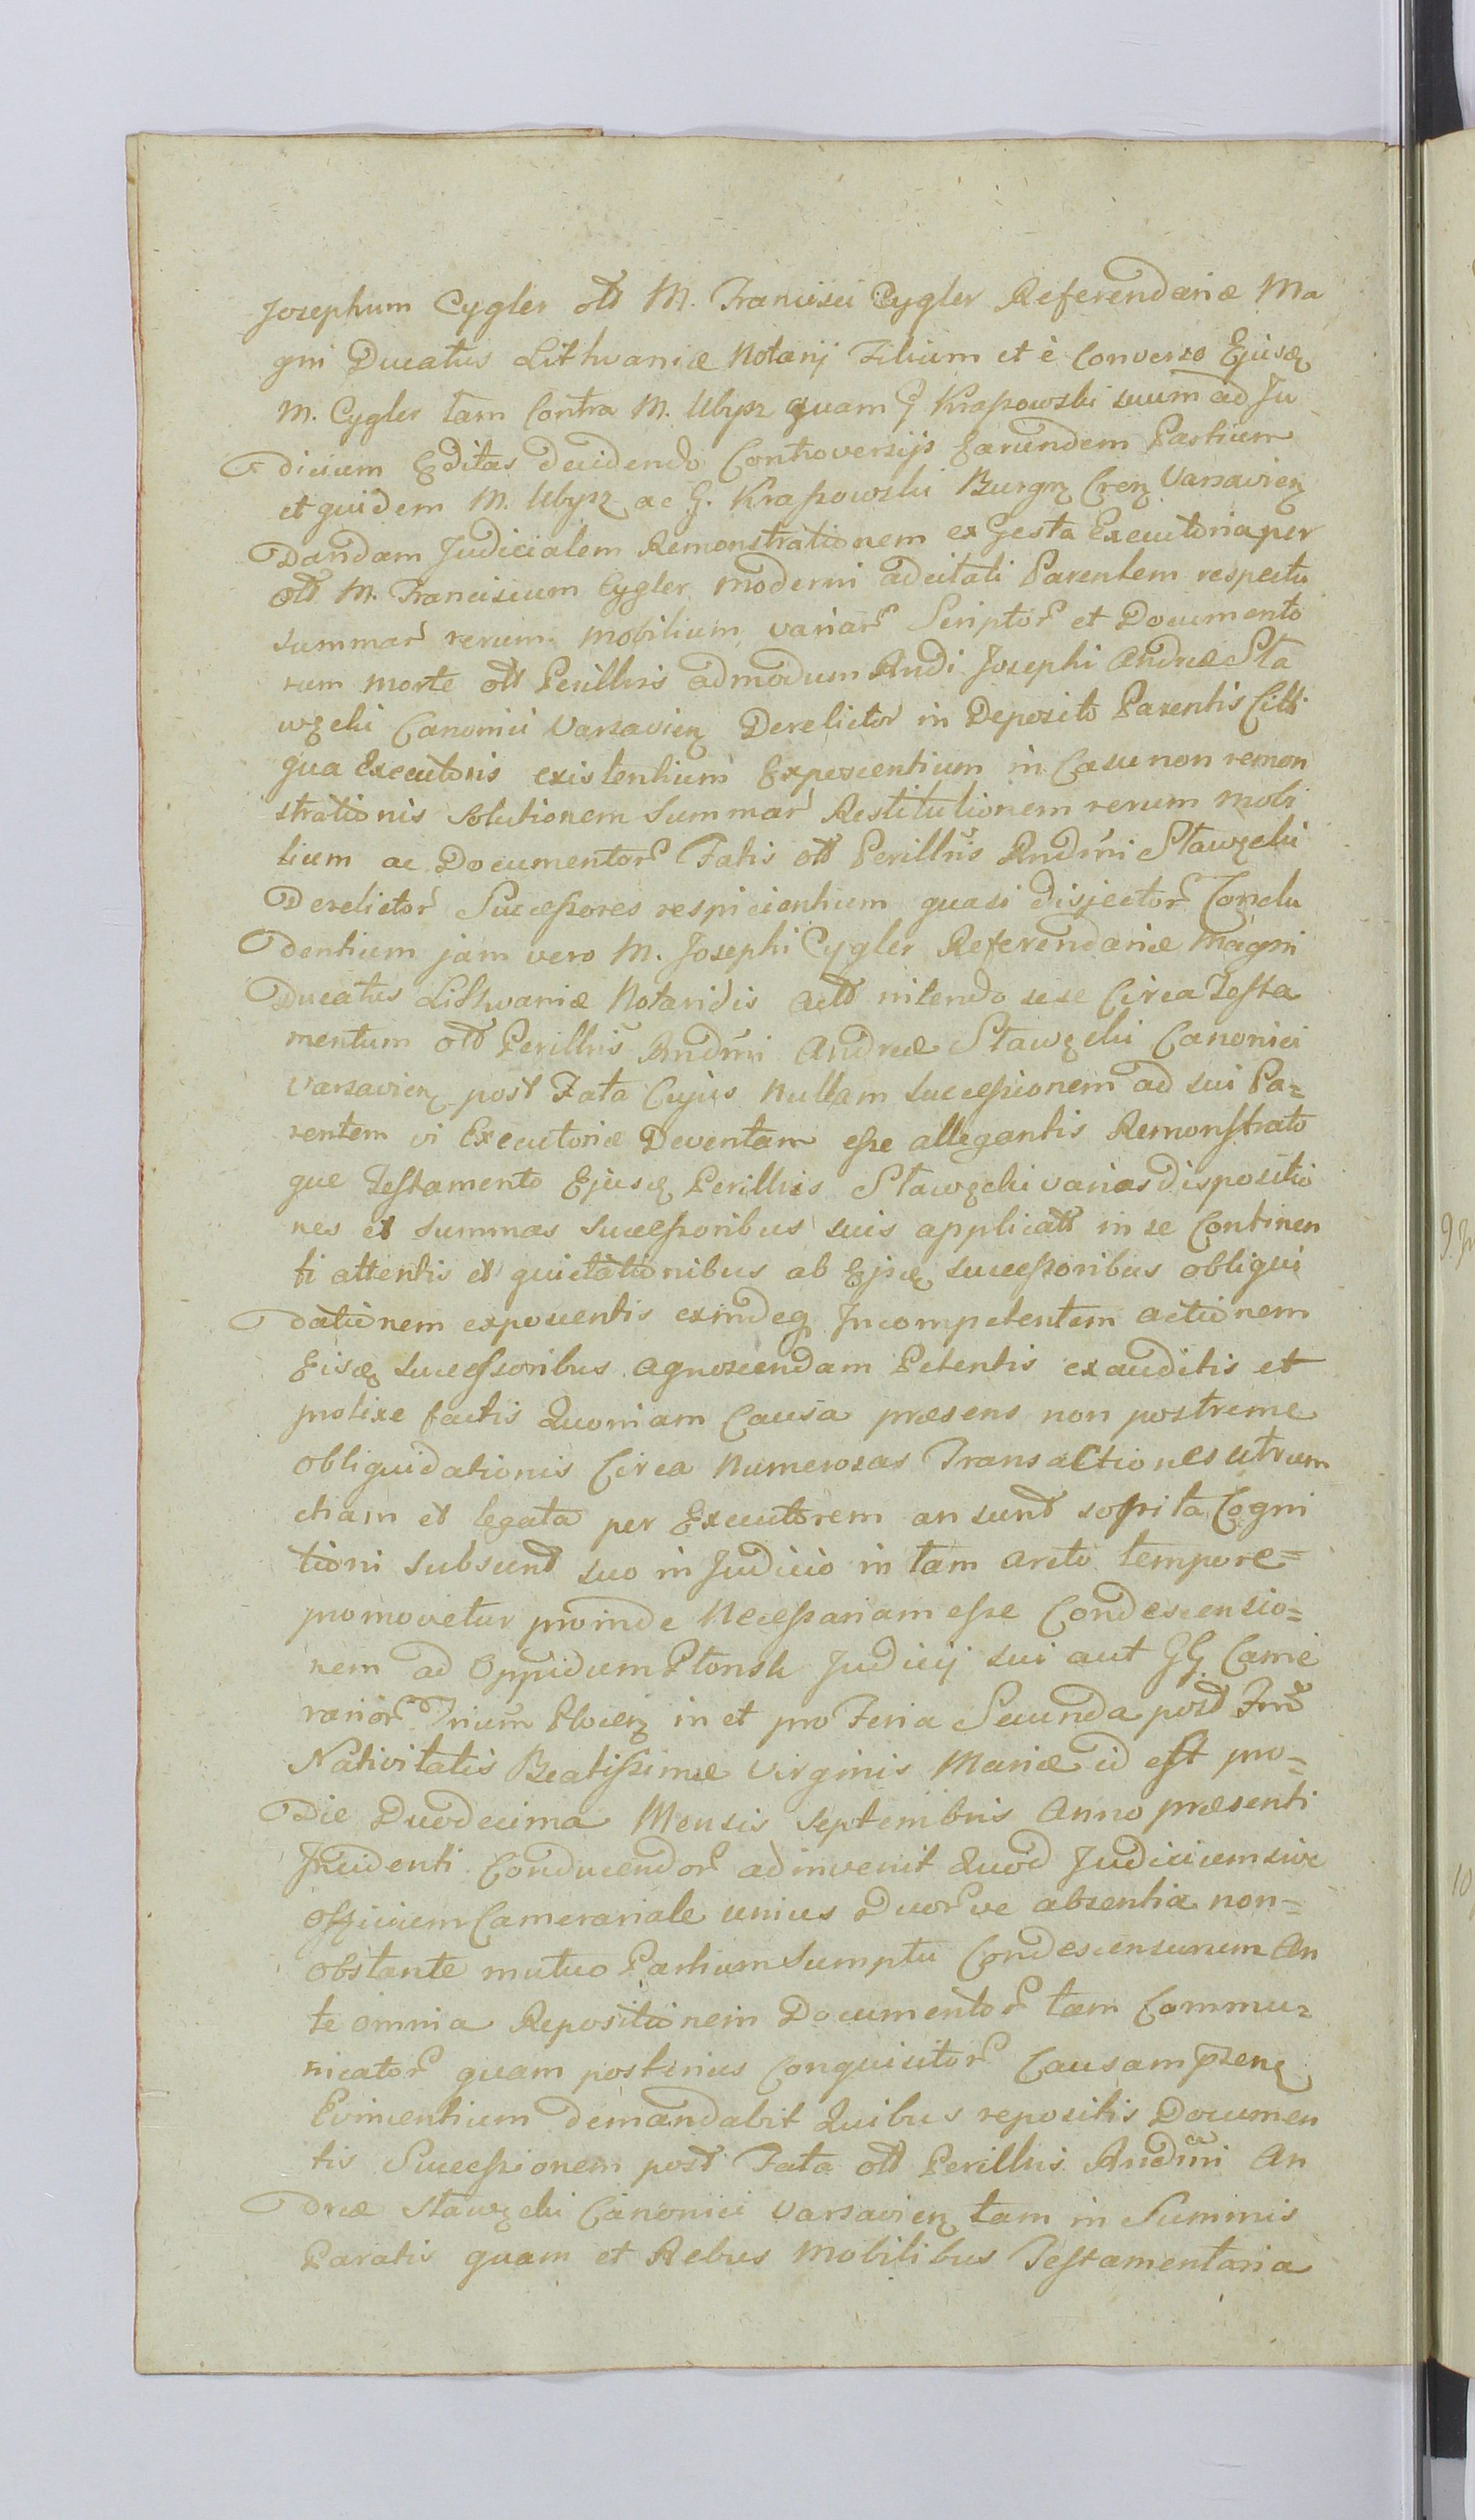 Josephum Cygler olt M. Francisci Cygler Referendariæ Ma
gni Ducatus Lithvaniæ Notarij Filium et è Converso Ejusq
M. Cygler tam Contra M. Ubysz quam G Kraszowski suum ad Ju
dicium Editas decidendo Controversijs Earundem Partium
et quidem M. Ubysz ac G. Kraszowski Burgrz Crenz Varsavienz
Dandam Judicialem Remonstrationem ex Gesta Executoria per
olt M. Franciscum Cygler moderni adcitati Parentem respectu
summar rerum mobilium variar Scriptor et Documento
rum morte olt Perillris admodum Rndi Josephi Andreæ Sta
wzchi Canonici Varsavienz Derelictor in Deposito Parentis Citti
qua Executoris existentium Exposcentium in Casu non remon
strationis solutionem Summar Restitutionem rerum mobi
lium ac Documentor Fatis olt Perillris Rndmi Stawzchi
Derelictor Successores respicientium quasi disjector Conclu
dentium jam vero M. Josephi Cygler Referendariæ Magni
Ducatus Lithvaniæ Notaridis actt nitendo sese Circa Testa
mentum olt Perillris Rndmi Andreæ Stawzchi Canonici
Varsavienz post Fata Cujus Nullam successionem ad sui Pa=
rentem vi Executoriæ Deventam esse allegantis Remonstrato
que Testamento Ejusq Perillris Stawzchi varias dispositio
nes et summas successoribus suis applicatt in se Continen
ti attentis et quietationibus ab Ejsq successoribus obliqui
dationem exposcentis exindeq Incompetentem actionem
Eisq successoribus agnoscendam Petentis exauditis et
prolixe factis Quoniam Causa præsens non postreme
obliquidationis Circa Numerosas Transactiones utrum
etiam et legata per Executorem an sunt sopita Cogni
tioni subsunt suo in Judicio in tam arcto tempore=
promovetur proinde Necessariam esse Condescensio=
nem ad Oppidum Płonsk Judicij sui aut GG Came
rarior Trium Plocenz in et pro Feria Secunda post Fm
Nativitatis Beatissimæ Virginis Mariæ id est pro=
Die Duodecima Mensis Septembris Anno præsenti
Incidenti Conducendor adinvenit Quod Judicium sive
officium Camerariale unius Duorve absentia non=
obstante mutuo Partium Sumptu Condescensurum An
te omnia Repositionem Documentor tam Commu=
nicator quam posterius Conquisitor Causam pzenz
Evincentium demandabit Quibus repositis Documen
tis Successionem post Fata olt Perillris Rndmi An
dreæ Stawzchi Canonici Varsavienz tam in Summis
Paratis quam et Rebus Mobilibus Testamentaria